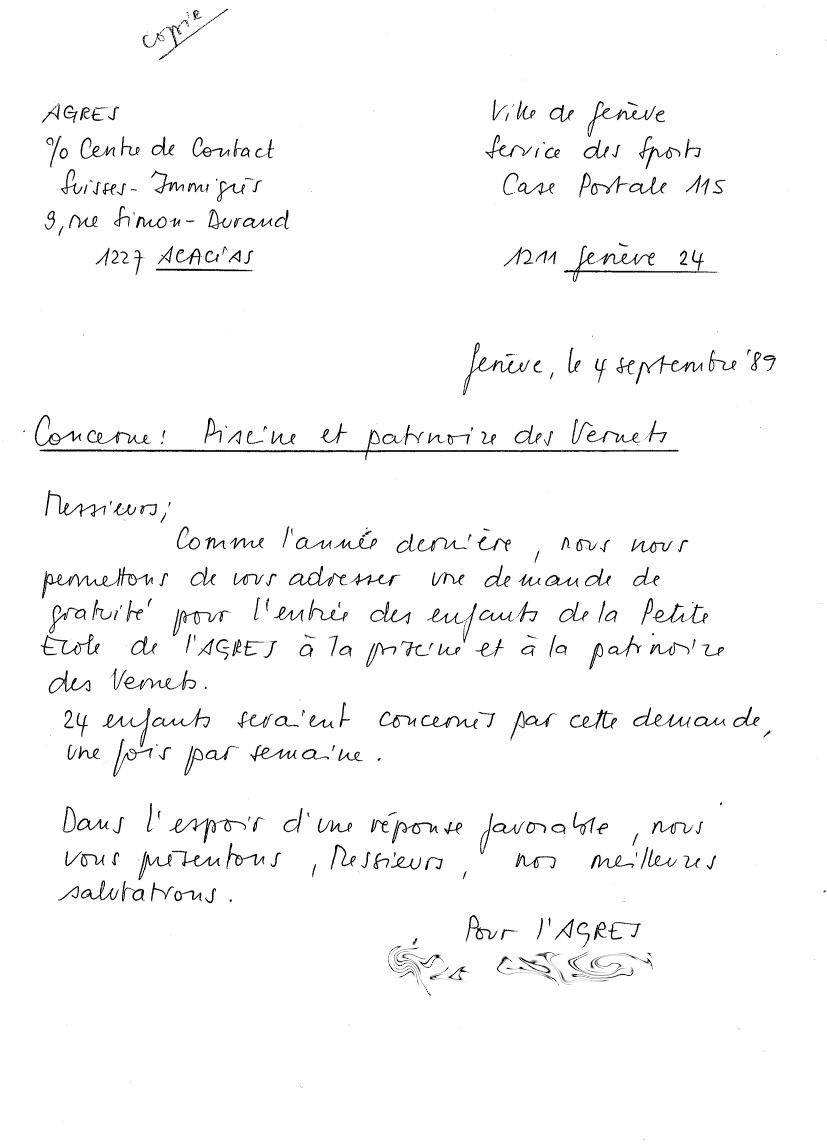 Copie
AGRES
% Centre de Contact
Suisses-Immigrés
9, rue Simon-Durand
1227 ACACIAS
Ville de Genève
Service des Sports
Case Postale 115
1211 Genève 24
Genève, le 4 septembre '89
Concerne: Piscine et patinoire des Vernets
Messieurs,
Comme l'année dernière, nous nous
permettons de vous adresser une demande de
gratuité pour l'entrée des enfants de la Petite
Ecole de l'AGRES à la piscine et à la patinoire
des Vernets.
24 enfants seraient concernés par cette demande,
une fois par semaine.
Dans l'espoir d'une réponse favorable, nous
vous présentons, Messieurs, nos meilleures
salutations.
Pour l'AGRES